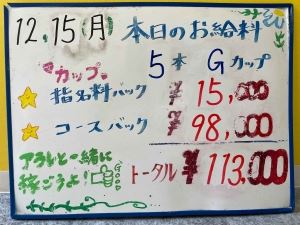 12.15(月) 本日のお給料
カップ。 5本 Gカップ
指名料バック ¥15,000
コースバック ¥98,000
と一緒に
稼ごうよ! トータル ¥113,000